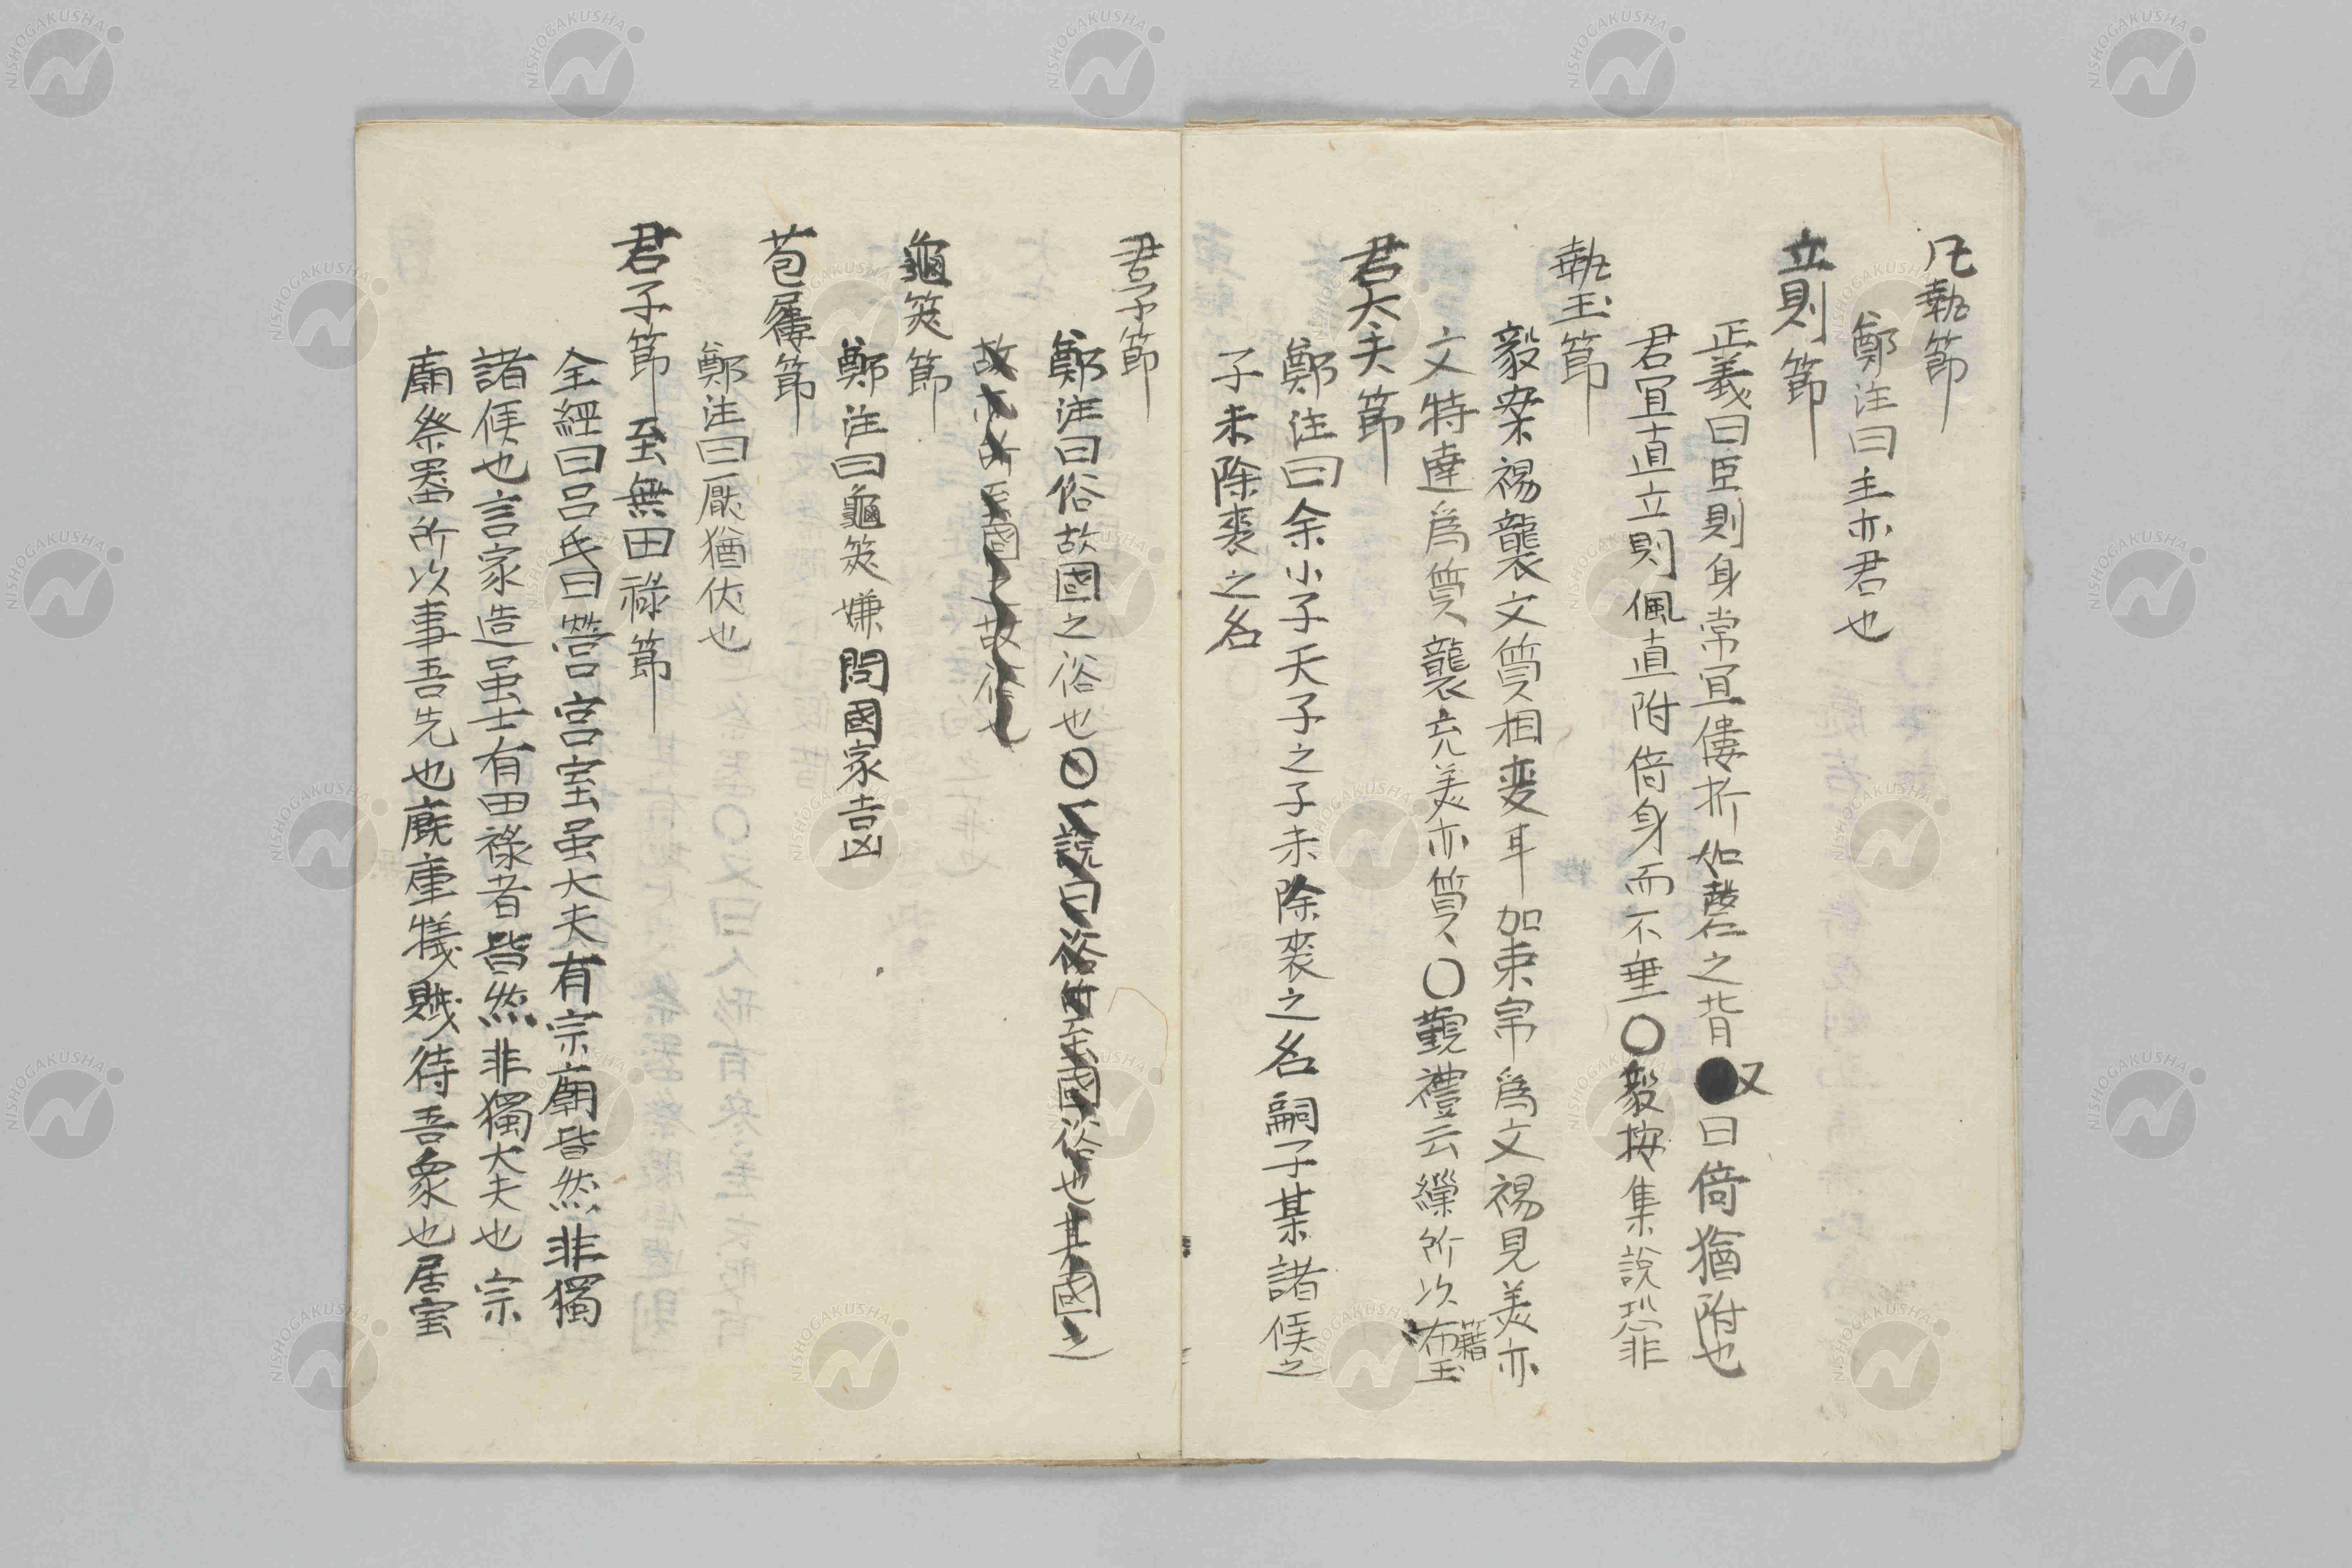 凡執節
鄭注曰主亦君也
立則節
正義曰臣則身常宜僂折如磬之背又曰倚猶附也
君宜直立則佩直附倚身而不垂〇毅按集説恐非
執玉節
毅案裼襲文質相変耳加束帛爲文裼見美亦
文特達爲質襲充美亦質〇覲禮云繅所以藉玉
君大夫節
鄭注曰余小子天子之子未除喪之名嗣子某諸侯之
子未除喪之名
君子節
鄭注曰俗故國之俗也〇一説曰俗者至國俗也其國之
故亦所至國之故俗也
龜筴節
鄭注曰龜筴嫌問國家吉凶
苞屨節
鄭注曰厭猶伏也
君子節至無田祿節
全經曰呂氏曰營宮室虽大夫有宗廟皆然非獨
諸侯也言家造虽士有田祿者皆然非獨大夫也宗
廟祭器所以事吾先也廐庫犠賎待吾衆也居室
NISHOGAKUSHA